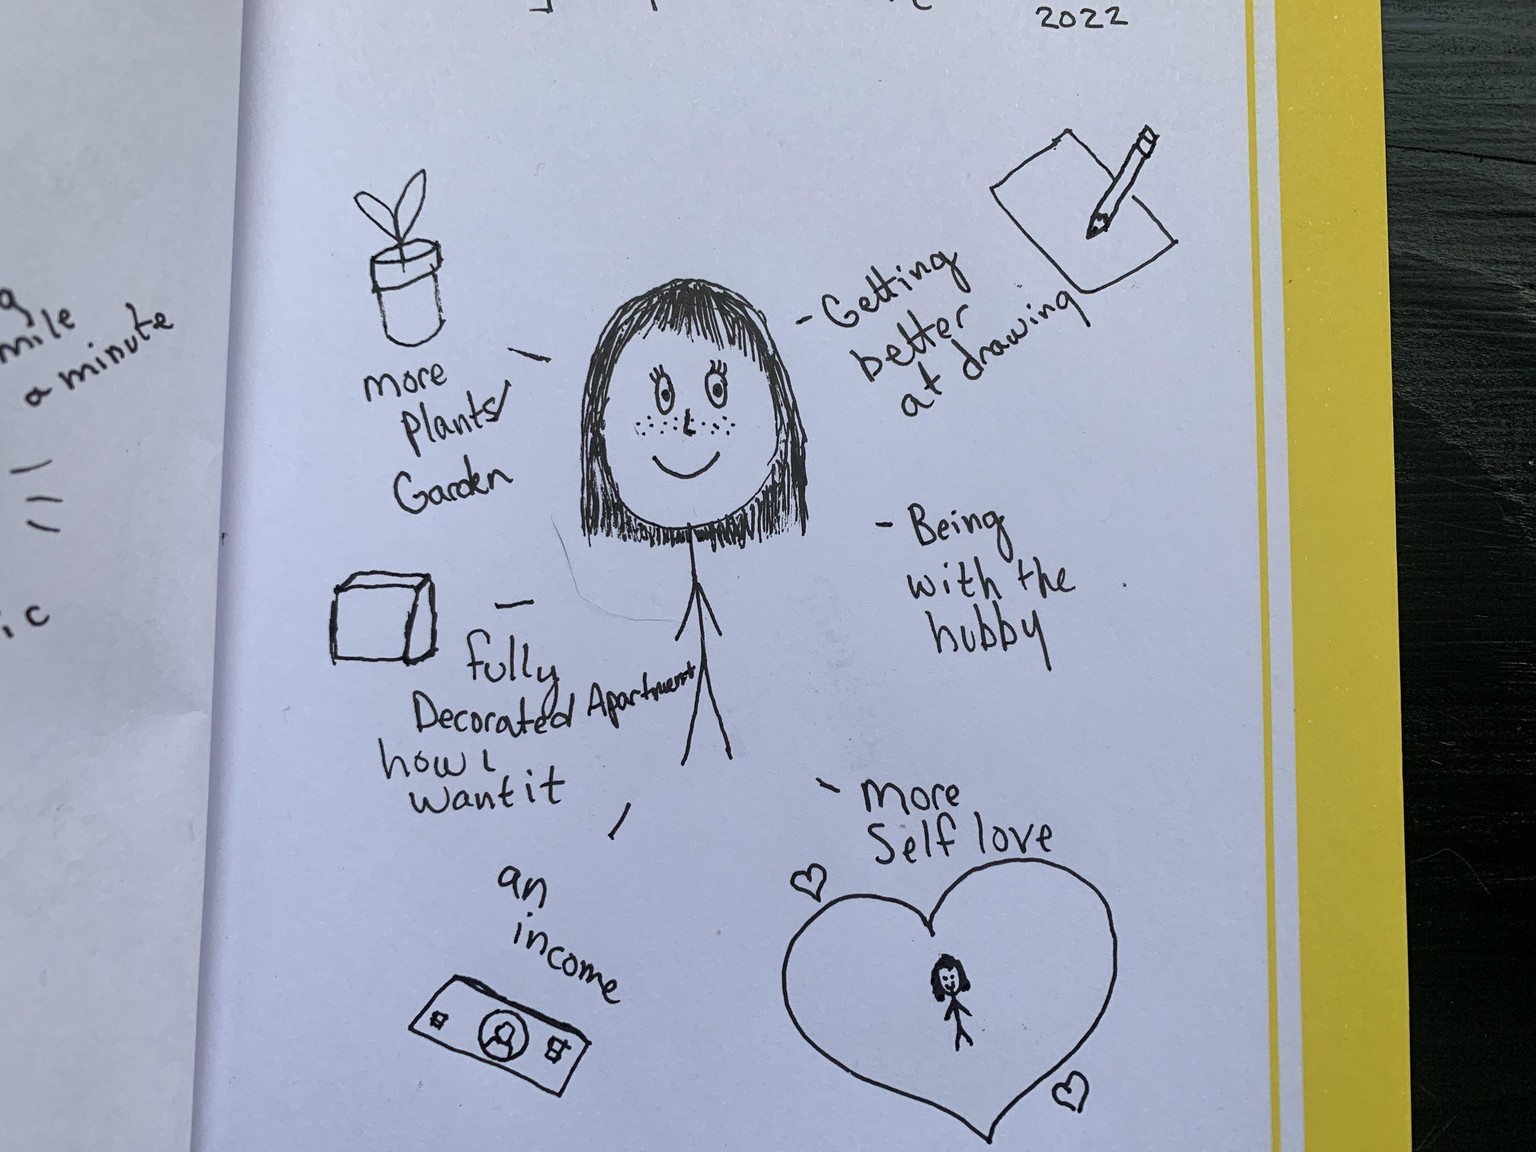 2022
mile
a minute
ic
more
Plants/
Garden
- Getting
better
at drawing
- Being
with the
hubby
fully
Decorated Apartment
how I
want it
an
income
more
Self love